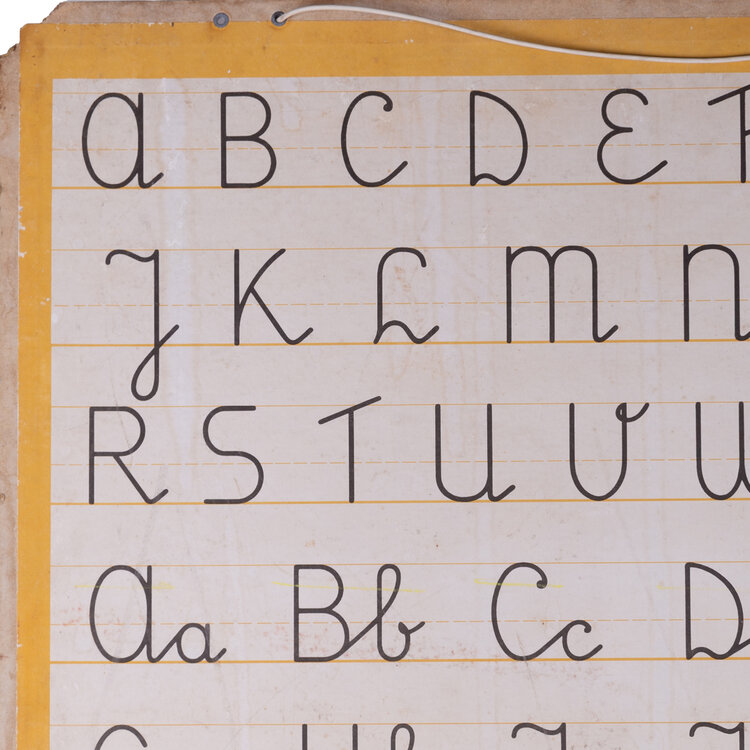 A B C D E F
J K L M N
R S T U V W
Aa Bb Cc D